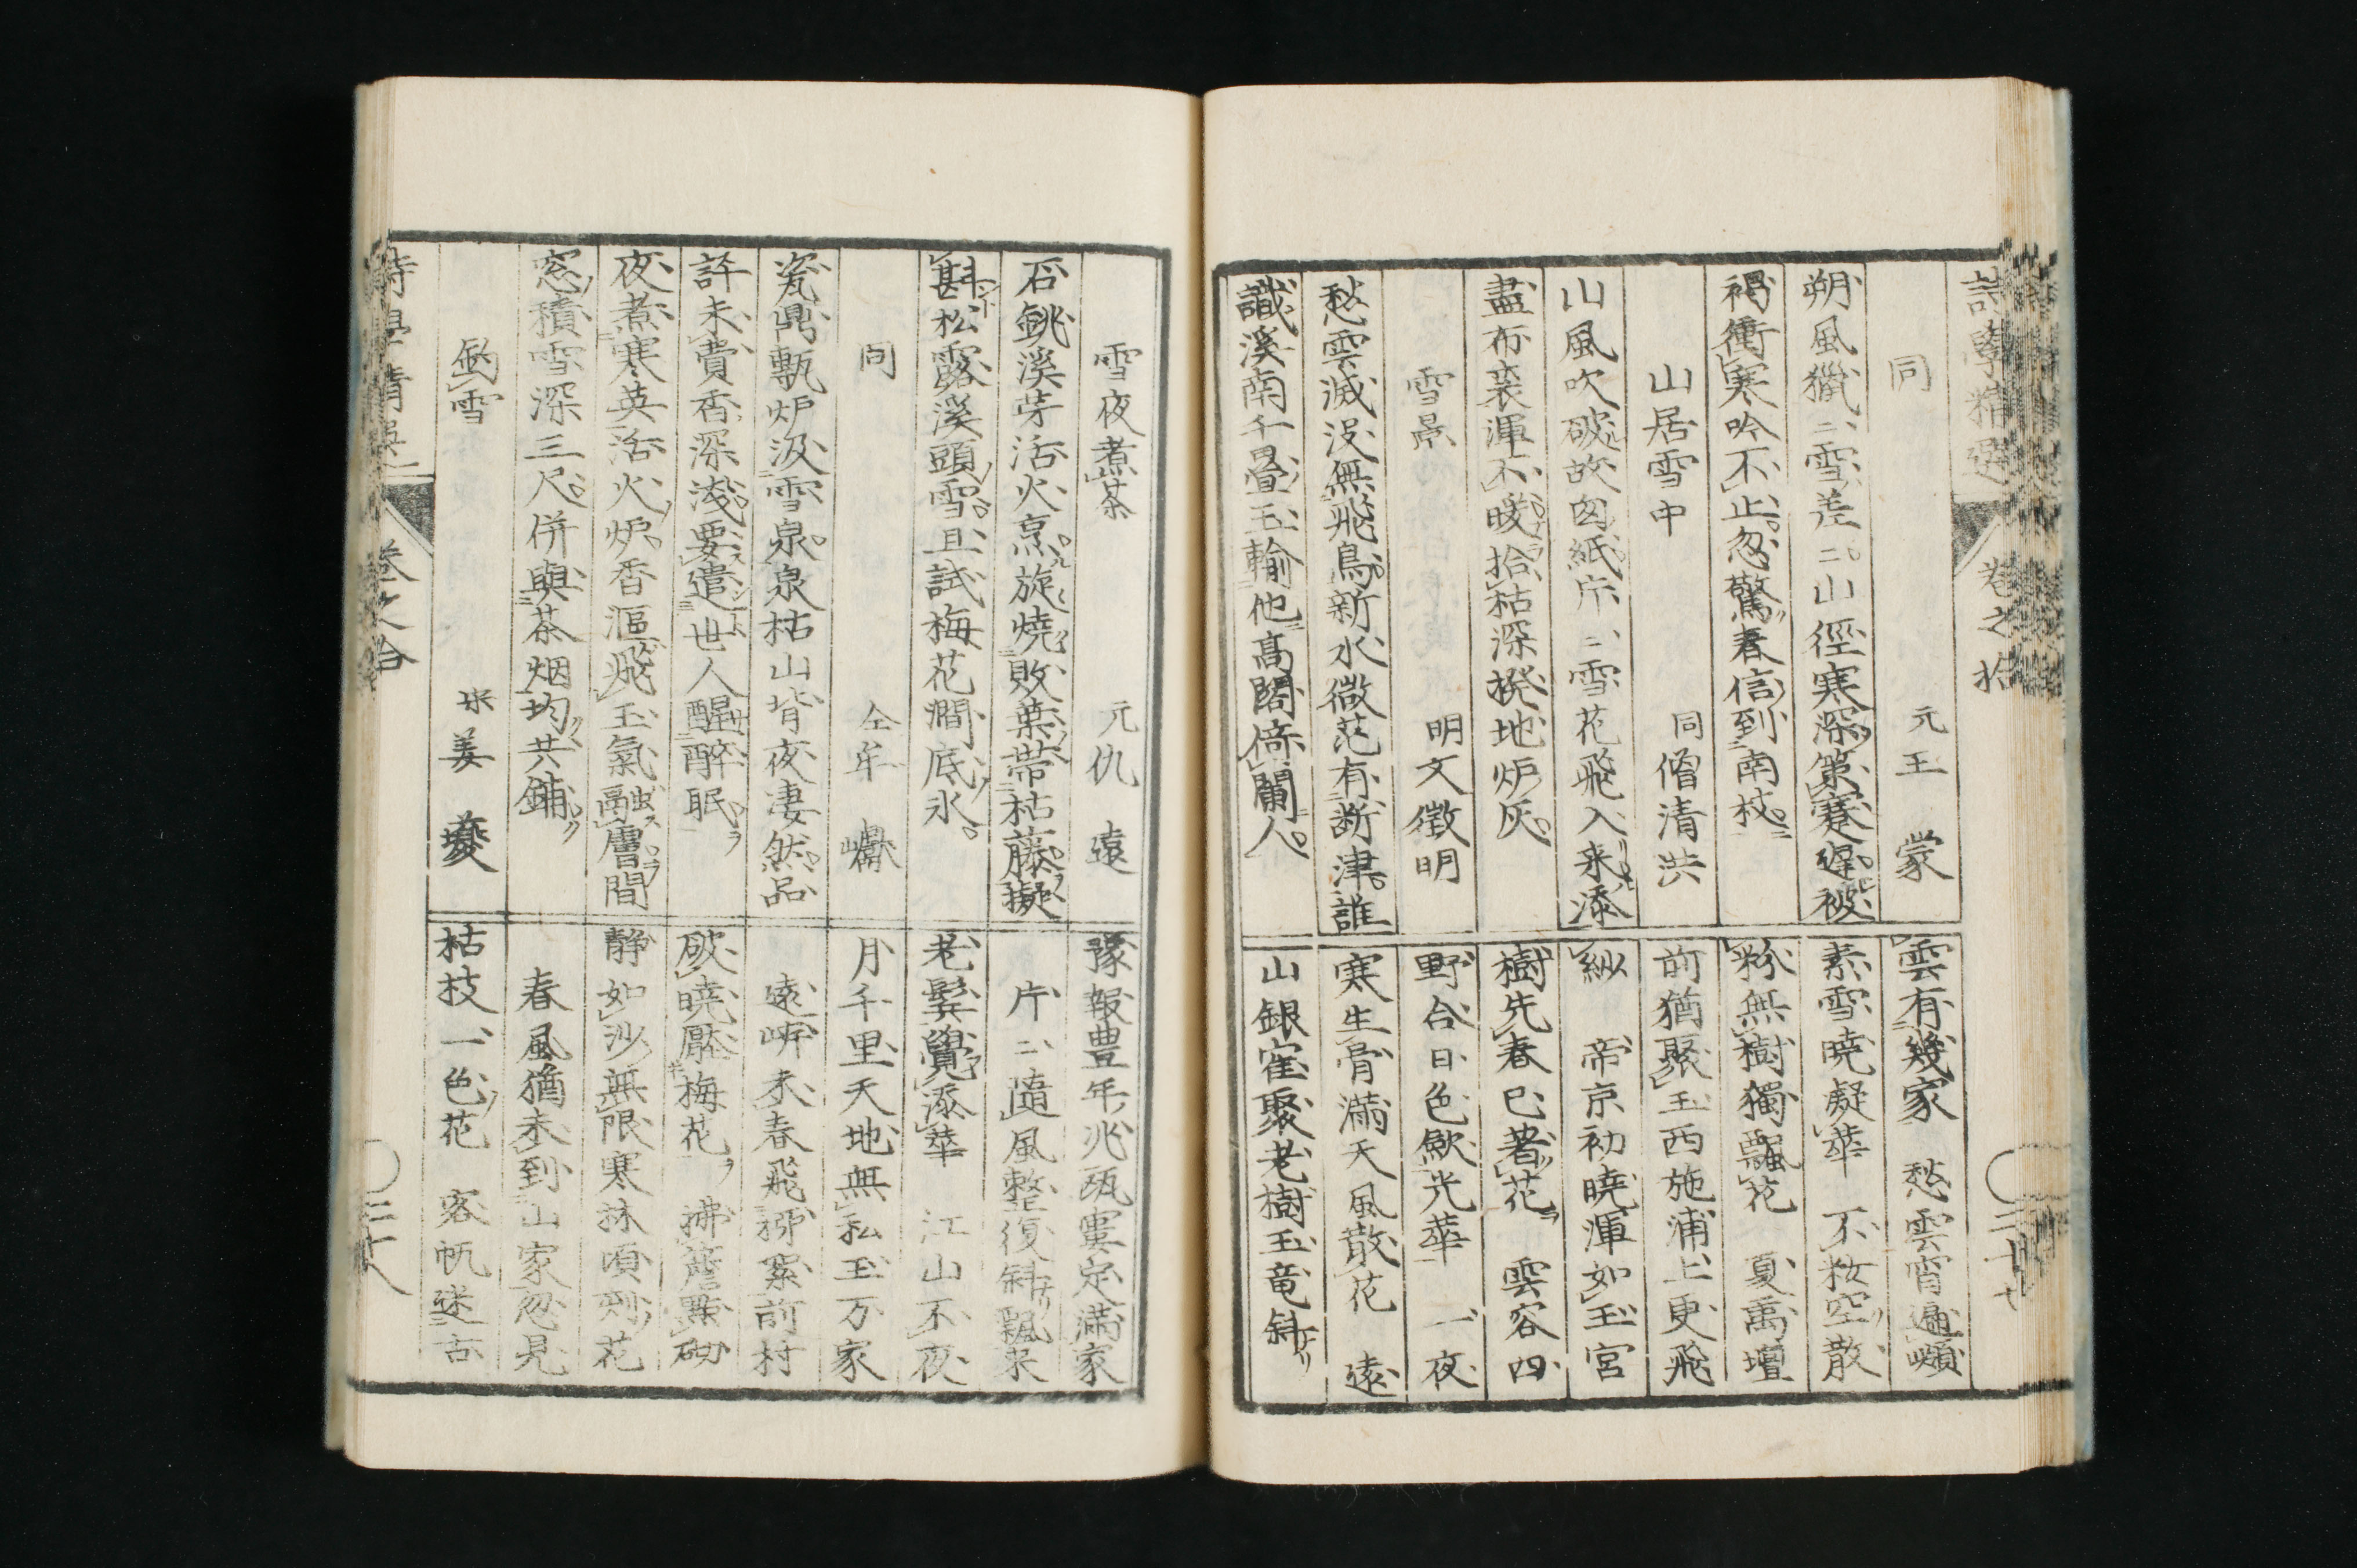 詩學精選 卷之拾
同 元王 蒙
朔風獵〻雪差〻山徑寒深策蹇遲被
褐衝寒吟不止忽驚春信到南枝
山居雪中 同僧清洪
山風吹破故囱紙片〻雪花飛入来添
盡布裘渾不暖拾枯深撥地炉灰
雪景 明文徴明
愁雲滅没無飛鳥新水微茫有断津誰
識溪南千畳玉輸他髙閣倚闌人
雲有幾家 愁雲宵遍嶺
素雪曉凝華 不粧空散
粉無樹獨飄花 夏禹壇
前猶聚玉西施浦上更飛
紗 帝京初曉渾如玉宮
樹先春已著花 雲容四
野合日色歛光華 一夜
寒生骨滿天風散花 遠
山銀崔聚老樹玉竜斜
二十七
雪夜煮茶 元仇 遠
石銚溪芽活火烹旋燒敗葉帯枯藤擬
斟松露溪頭雪且試梅花澗底氷
同 仝牟 巘
瓷鼎甎炉汲雪泉泉枯山堦夜凄然品
評未費香深浅要遣世人醒醉眠
夜煮寒英活火炉香漚飛玉氣融膚間
窓積雪深三尺併與茶烟均共鋪
釣雪 宋姜 夔
豫報豊年兆瓯窶定滿家
片〻隨風整復斜飄来
老鬂覺添華 江山不夜
月千里天地無私玉万家
遠岫未春飛 絮前村
破曉壓梅花 拂簷點砌
静如沙無限寒林頃刻花
春風猶未到山家忽見
枯枝一色花 客帆迷古
詩學精選 卷之拾
二十八